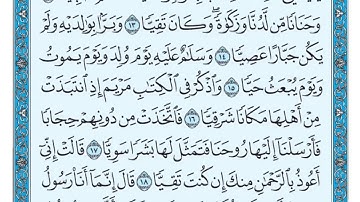 وَحَنَانًا مِّن لَّدُنَّا وَزَكَوٰةً ۖ وَكَانَ تَقِيًّا ١٣ وَبَرًّۢا بِوَٰلِدَيْهِ وَلَمْ
يَكُن جَبَّارًا عَصِيًّا ١٤ وَسَلَٰمٌ عَلَيْهِ يَوْمَ وُلِدَ وَيَوْمَ يَمُوتُ
وَيَوْمَ يُبْعَثُ حَيًّا ١٥ وَٱذْكُرْ فِى ٱلْكِتَٰبِ مَرْيَمَ إِذِ ٱنتَبَذَتْ
مِنْ أَهْلِهَا مَكَانًا شَرْقِيًّا ١٦ فَٱتَّخَذَتْ مِن دُونِهِمْ حِجَابًا
فَأَرْسَلْنَآ إِلَيْهَا رُوحَنَا فَتَمَثَّلَ لَهَا بَشَرًا سَوِيًّا ١٧ قَالَتْ إِنِّىٓ
أَعُوذُ بِٱلرَّحْمَٰنِ مِنكَ إِن كُنتَ تَقِيًّا ١٨ قَالَ إِنَّمَآ أَنَا۠ رَسُولُ